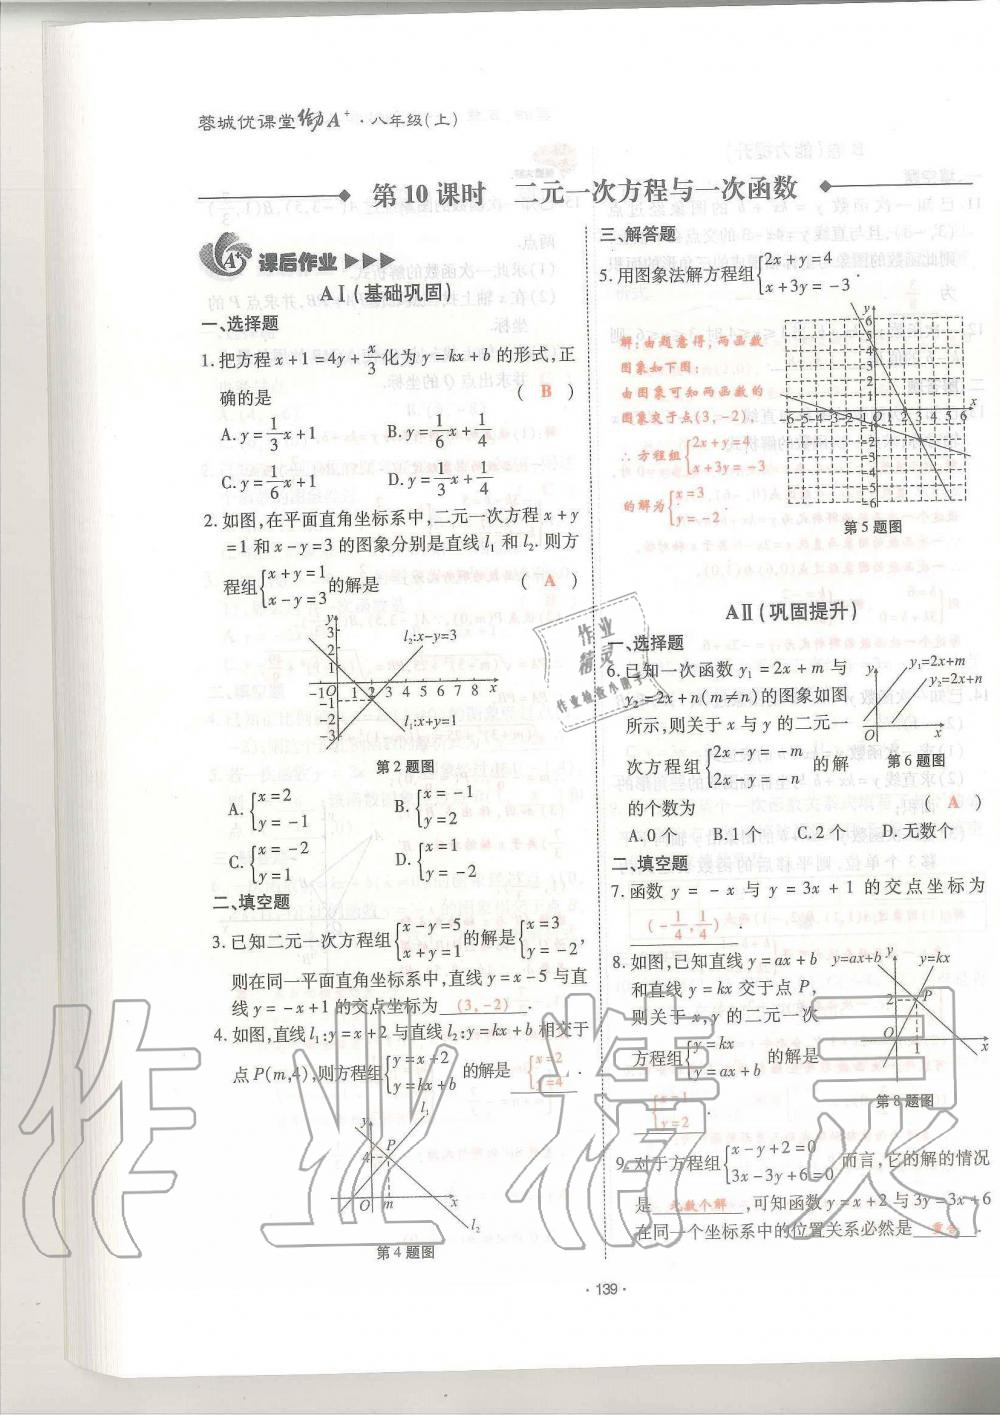 蓉城优课堂 给力A+·八年级(上)
第10课时 二元一次方程与一次函数
课后作业
AⅠ(基础巩固)
一、选择题
1. 把方程 x+1=4y+x/3 化为 y=kx+b 的形式,正
确的是 ( B )
A. y=1/3x+1 B. y=1/6x+1/4
C. y=1/6x+1 D. y=1/3x+1/4
2. 如图,在平面直角坐标系中,二元一次方程 x+y
=1 和 x-y=3 的图象分别是直线 l₁ 和 l₂. 则方
程组{x+y=1, x-y=3 的解是 ( A )
y
3
2
1
l₂:x-y=3
-1 0 1 2 3 4 5 6 7 8 x
-1
-2
-3
l₁:x+y=1
第2题图
A. {x=2 y=-1 B. {x=-1 y=2
C. {x=-2 y=1 D. {x=1 y=-2
二、填空题
3. 已知二元一次方程组{x-y=5 x+y=1 的解是{x=3 y=-2,
则在同一平面直角坐标系中,直线 y=x-5 与直
线 y=-x+1 的交点坐标为 (3,-2) .
4. 如图,直线 l₁:y=x+2 与直线 l₂:y=kx+b 相交于
点 P(m,4),则方程组{y=x+2 y=kx+b 的解是 {x=2 y=4 .
y
l₁
4
P
O m x
l₂
第4题图
三、解答题
5. 用图象法解方程组{2x+y=4 x+3y=-3.
解:由题意得,两函数
图象如下图:
由图象可知两函数的
图象交于点(3,-2),
∴方程组{2x+y=4 x+3y=-3
的解为{x=3 y=-2.
y
6
5
4
3
2
1
-6-5-4-3-2-1 0 1 2 3 4 5 6 x
-1
-2
-3
-4
-5
-6
第5题图
AⅡ(巩固提升)
一、选择题
6. 已知一次函数 y₁=2x+m 与
y₂=2x+n(m≠n)的图象如图
所示,则关于 x 与 y 的二元一
次方程组{2x-y=-m 2x-y=-n 的解
的个数为 ( A )
A. 0 个 B. 1 个 C. 2 个 D. 无数个
y y₁=2x+m
y₂=2x+n
O x
第6题图
二、填空题
7. 函数 y=-x 与 y=3x+1 的交点坐标为
(-1/4,1/4) .
8. 如图,已知直线 y=ax+b
和直线 y=kx 交于点 P,
则关于 x,y 的二元一次
方程组{y=kx y=ax+b 的解是
{x=1 y=2 .
y=ax+b y y=kx
2 P
O 1 x
第8题图
9. 对于方程组{x-y+2=0 3x-3y+6=0 而言,它的解的情况
是 无数个解 ,可知函数 y=x+2 与 3y=3x+6
在同一个坐标系中的位置关系必然是 重合 .
·139·
作业
精灵
作业检查小助手
作业精灵